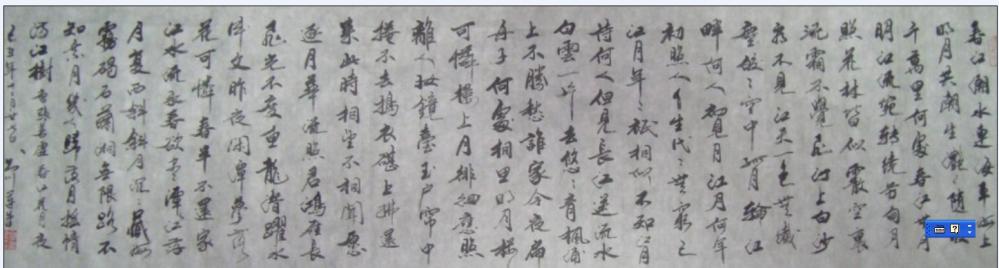 春江潮水連海平海上
明月共潮生灩灩隨
千萬里何處春江無月
明江流宛轉繞芳甸月
照花林皆似霰空裏
流霜不覺飛汀上白沙
看不見江天一色無纖
塵皎皎空中孤月輪江
畔何人初見月江月何年
初照人人生代代無窮已
江月年年祗相似不知江月
待何人但見長江送流水
白雲一片去悠悠青楓浦
上不勝愁誰家今夜扁
舟子何處相思明月樓
可憐樓上月徘徊應照
離人妝鏡臺玉戶簾中
捲不去搗衣砧上拂還
來此時相望不相聞願
逐月華流照君鴻雁長
飛光不度魚龍潛躍水
成文昨夜閑潭夢落
花可憐春半不還家
江水流去春欲盡潭江落
月復西斜斜月沉沉藏海
霧碣石瀟湘無限路不
知乘月幾人歸落月搖情
滿江樹 書張若虛春江花月夜